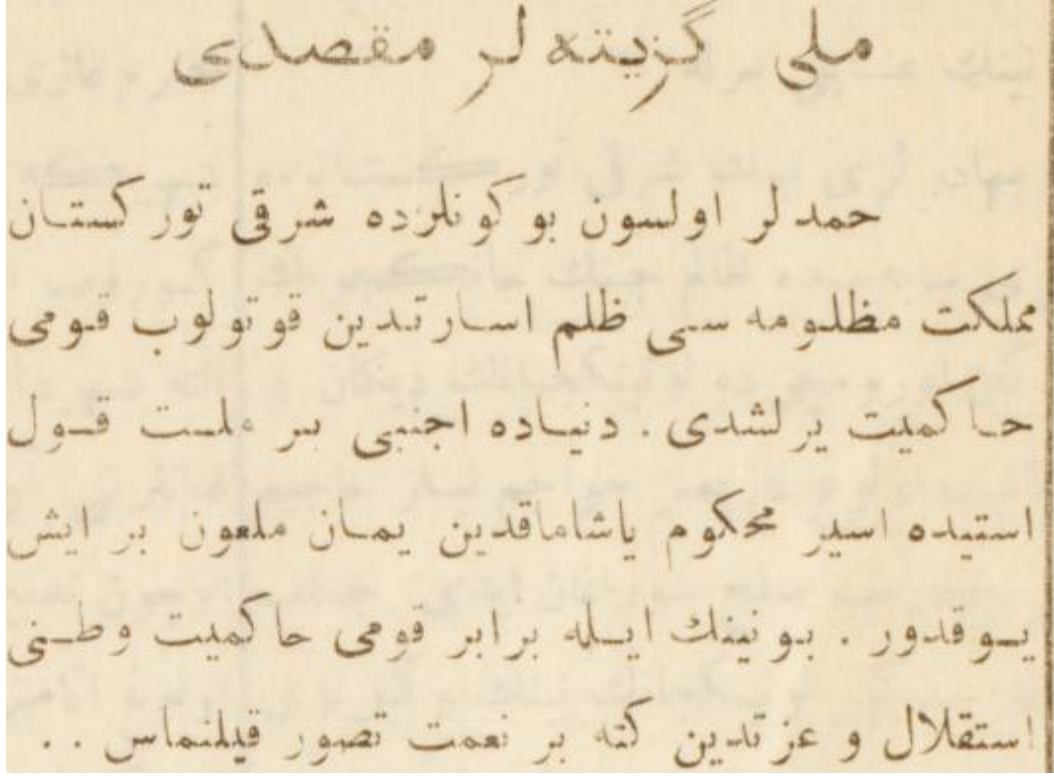 ملی گزیته لر مقصدی
حمد لر اولسون بو كونلرده شرقی توركستان
مملكت مظلومه سی ظلم اسارتدین قوتولوب قومی
حاكمیت یرلشدی . دنیاده اجنبی بر ملت قول
استیده اسیر محكوم یاشاماقدین یمان ملعون بر ایش
یوقدور . بونینك ایله برابر قومی حاكمیت وطنی
استقلال و عزتدین كته بر نعمت تصور قیلنماس . .